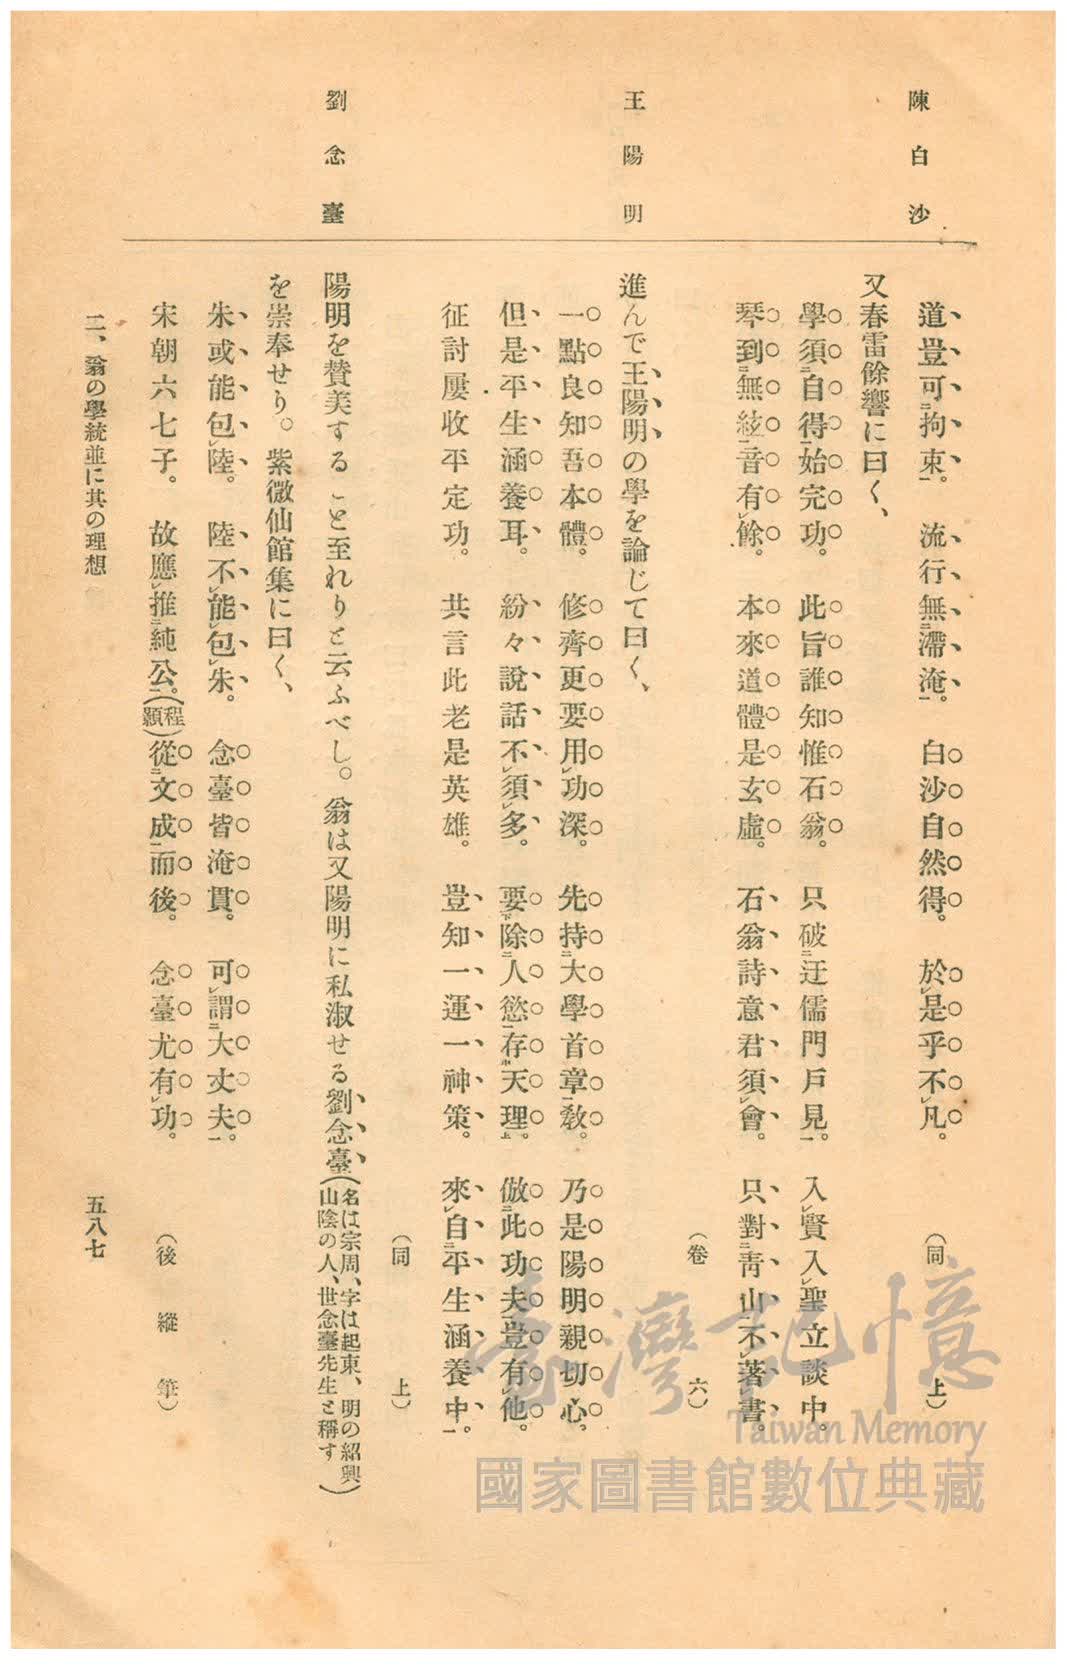 陳白沙
王陽明
劉念臺
道豈可拘束。流行無滯淹。白沙自然得。於是乎不凡。（同上）
又春雷餘響に曰く、
學須自得始完功。此旨誰知惟石翁。只破迂儒門戶見。入賢入聖立談中。
琴到無絃音有餘。本來道體是玄虛。石翁詩意君須會。只對靑山不著書。（卷六）
進んで王陽明の學を論じて曰く、
一點良知吾本體。修齊更要用功深。先持大學首章敎。乃是陽明親切心。
但是平生涵養耳。紛々說話不須多。要除人慾存天理。倣此功夫豈有他。
征討屢收平定功。共言此老是英雄。豈知一運一神策。來自平生涵養中。（同上）
陽明を賛美すること至れりと云ふべし。翁は又陽明に私淑せる劉念臺（名は宗周、字は起東、明の紹興山陰の人、世念臺先生と稱す）
を崇奉せり。紫微仙館集に曰く、
朱或能包陸。陸不能包朱。念臺皆淹貫。可謂大丈夫。
宋朝六七子。故應推純公。（程顥）從文成而後。念臺尤有功。（後縱筆）
二、翁の學統並に其の理想
五八七
臺灣記憶
Taiwan Memory
國家圖書館數位典藏